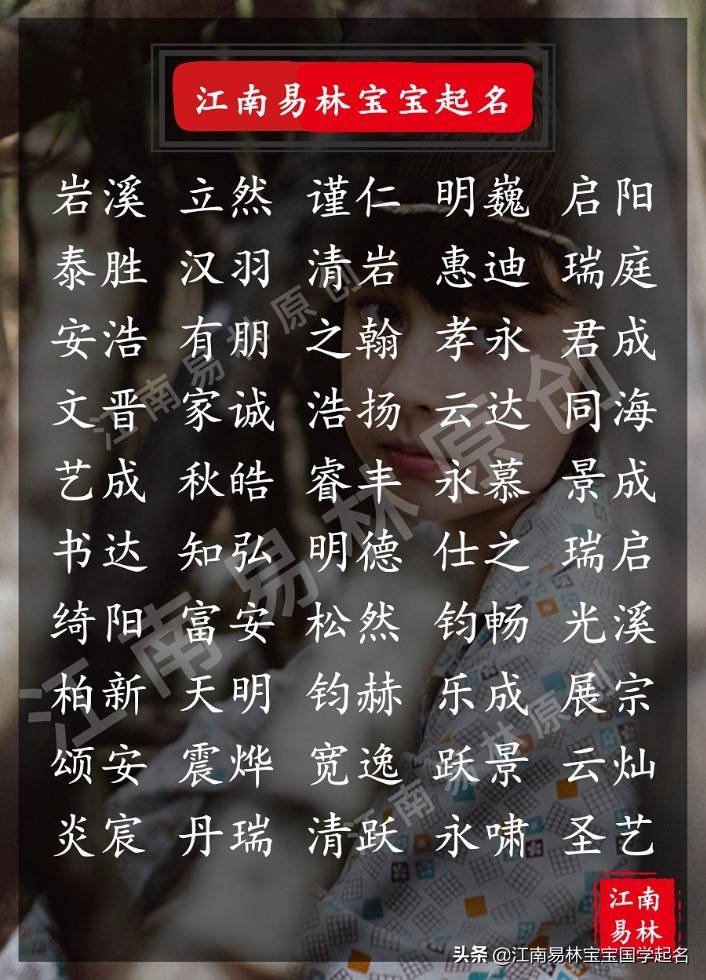 江南易林宝宝起名
岩溪 立然 谨仁 明巍 启阳
泰胜 汉羽 清岩 惠迪 瑞庭
安浩 有朋 之翰 孝永 君成
文晋 家诚 浩扬 云达 同海
艺成 秋皓 睿丰 永慕 景成
书达 知弘 明德 仕之 瑞启
绮阳 富安 松然 钧畅 光溪
柏新 天明 钧赫 乐成 展宗
颂安 震烨 宽逸 跃景 云灿
炎宸 丹瑞 清跃 永啸 圣艺
江南易林原创
江南易林原创
江南易林原创
江南
易林
头条 @江南易林宝宝国学起名